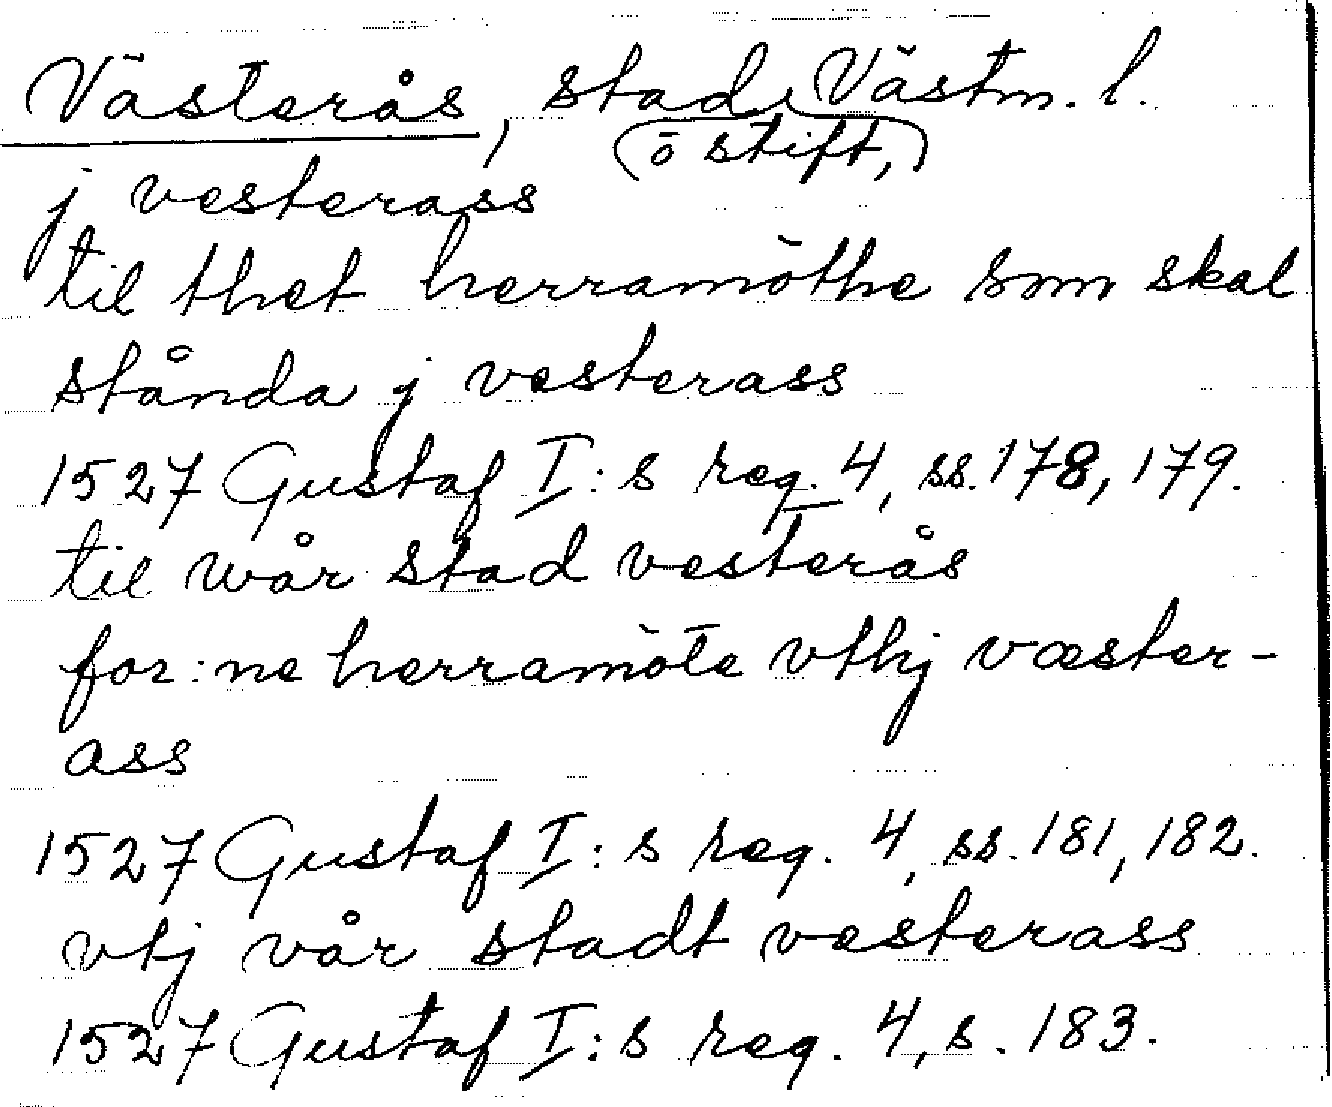 Västerås, stad, Västm. l.
(ō stift,)
j vesterass
til thet herramöthe som skal
stånda j vesterass
1527 Gustaf I:s reg. 4, ss. 178, 179.
til wår stad vesterås
for:ne herramöte vthj væster-
ass
1527 Gustaf I:s reg. 4, ss. 181, 182.
vtj vår stadt vesterass
1527 Gustaf I:s reg. 4, s. 183.